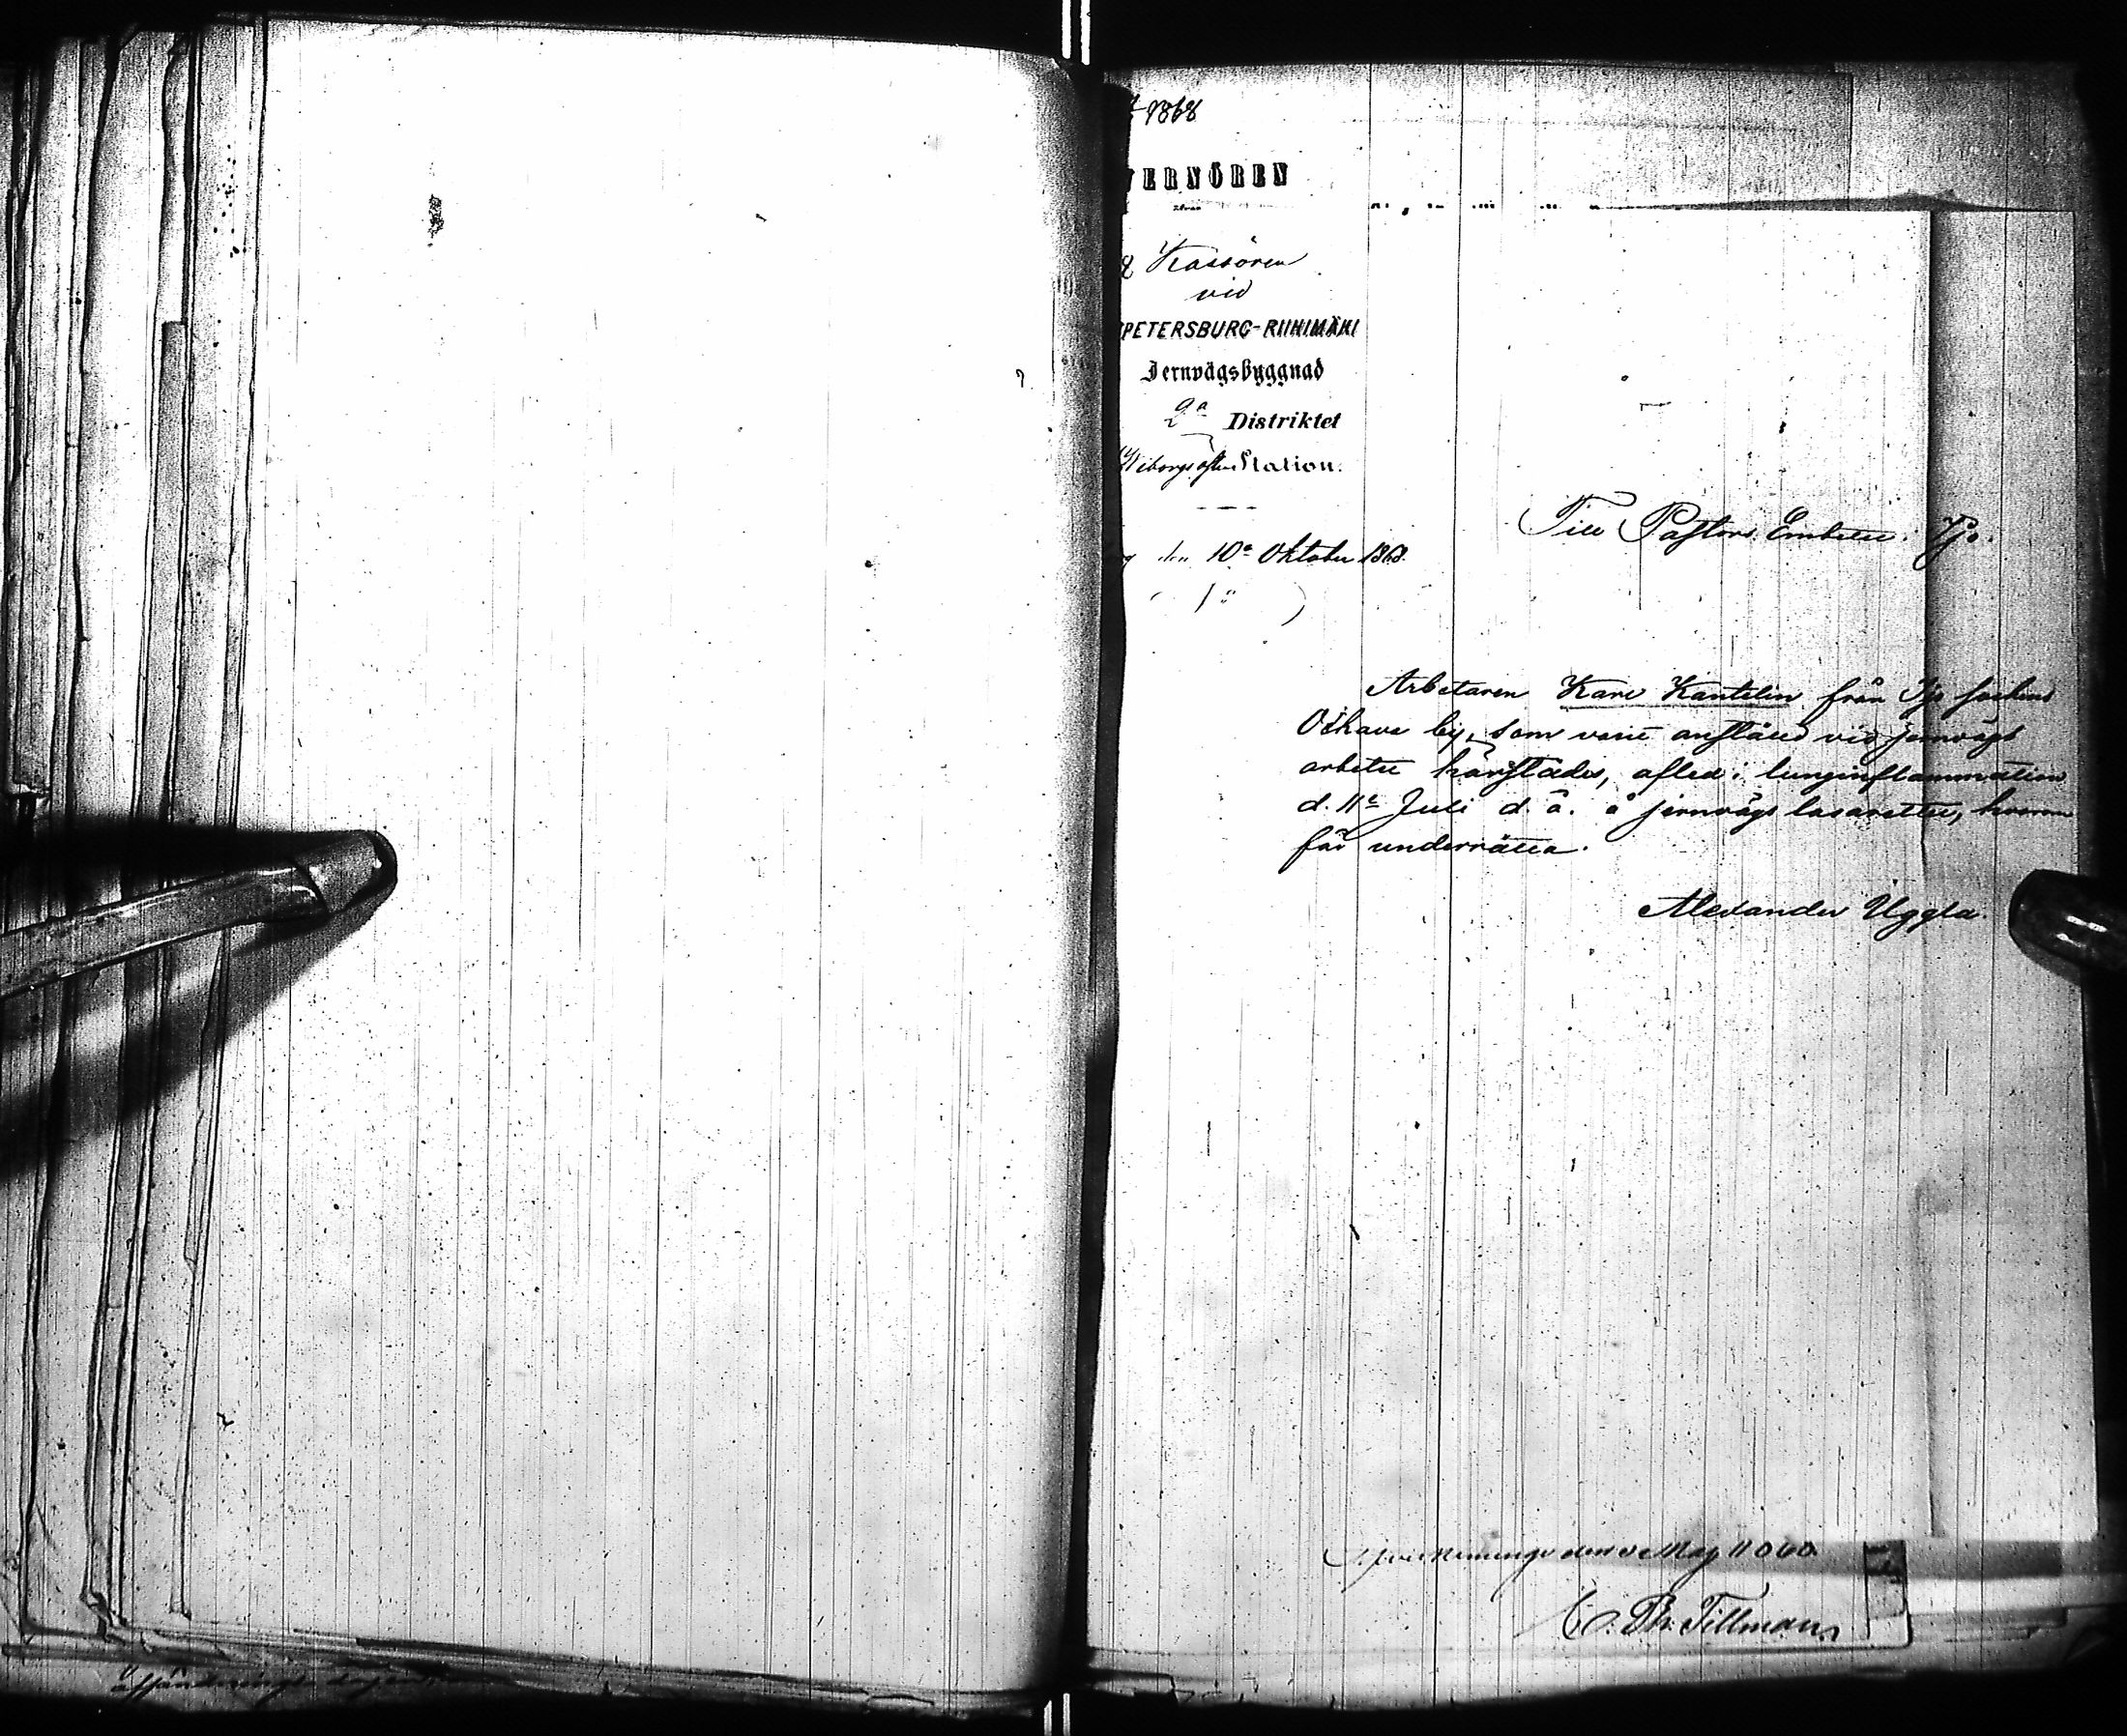 1868
VERNÖREN
Kassören
vid
PETERSBURG-RIIHIMÄKI
Jernvägsbyggnad
2a Distriktet
Wiborgs Station.
den 10e Oktober 1868.
Till Pastors Embetet Ijo.
Arbetaren Karl Kantelin från Ijo socken
by, som varit anställd vid jernvägs
arbetet härstädes, afled i lunginflammation
d. 11e Juli d. å. å jernvägs lasarettet, hvarom
får underrätta.
Alexander Uggla.
den Maj
C. Th. Tillman